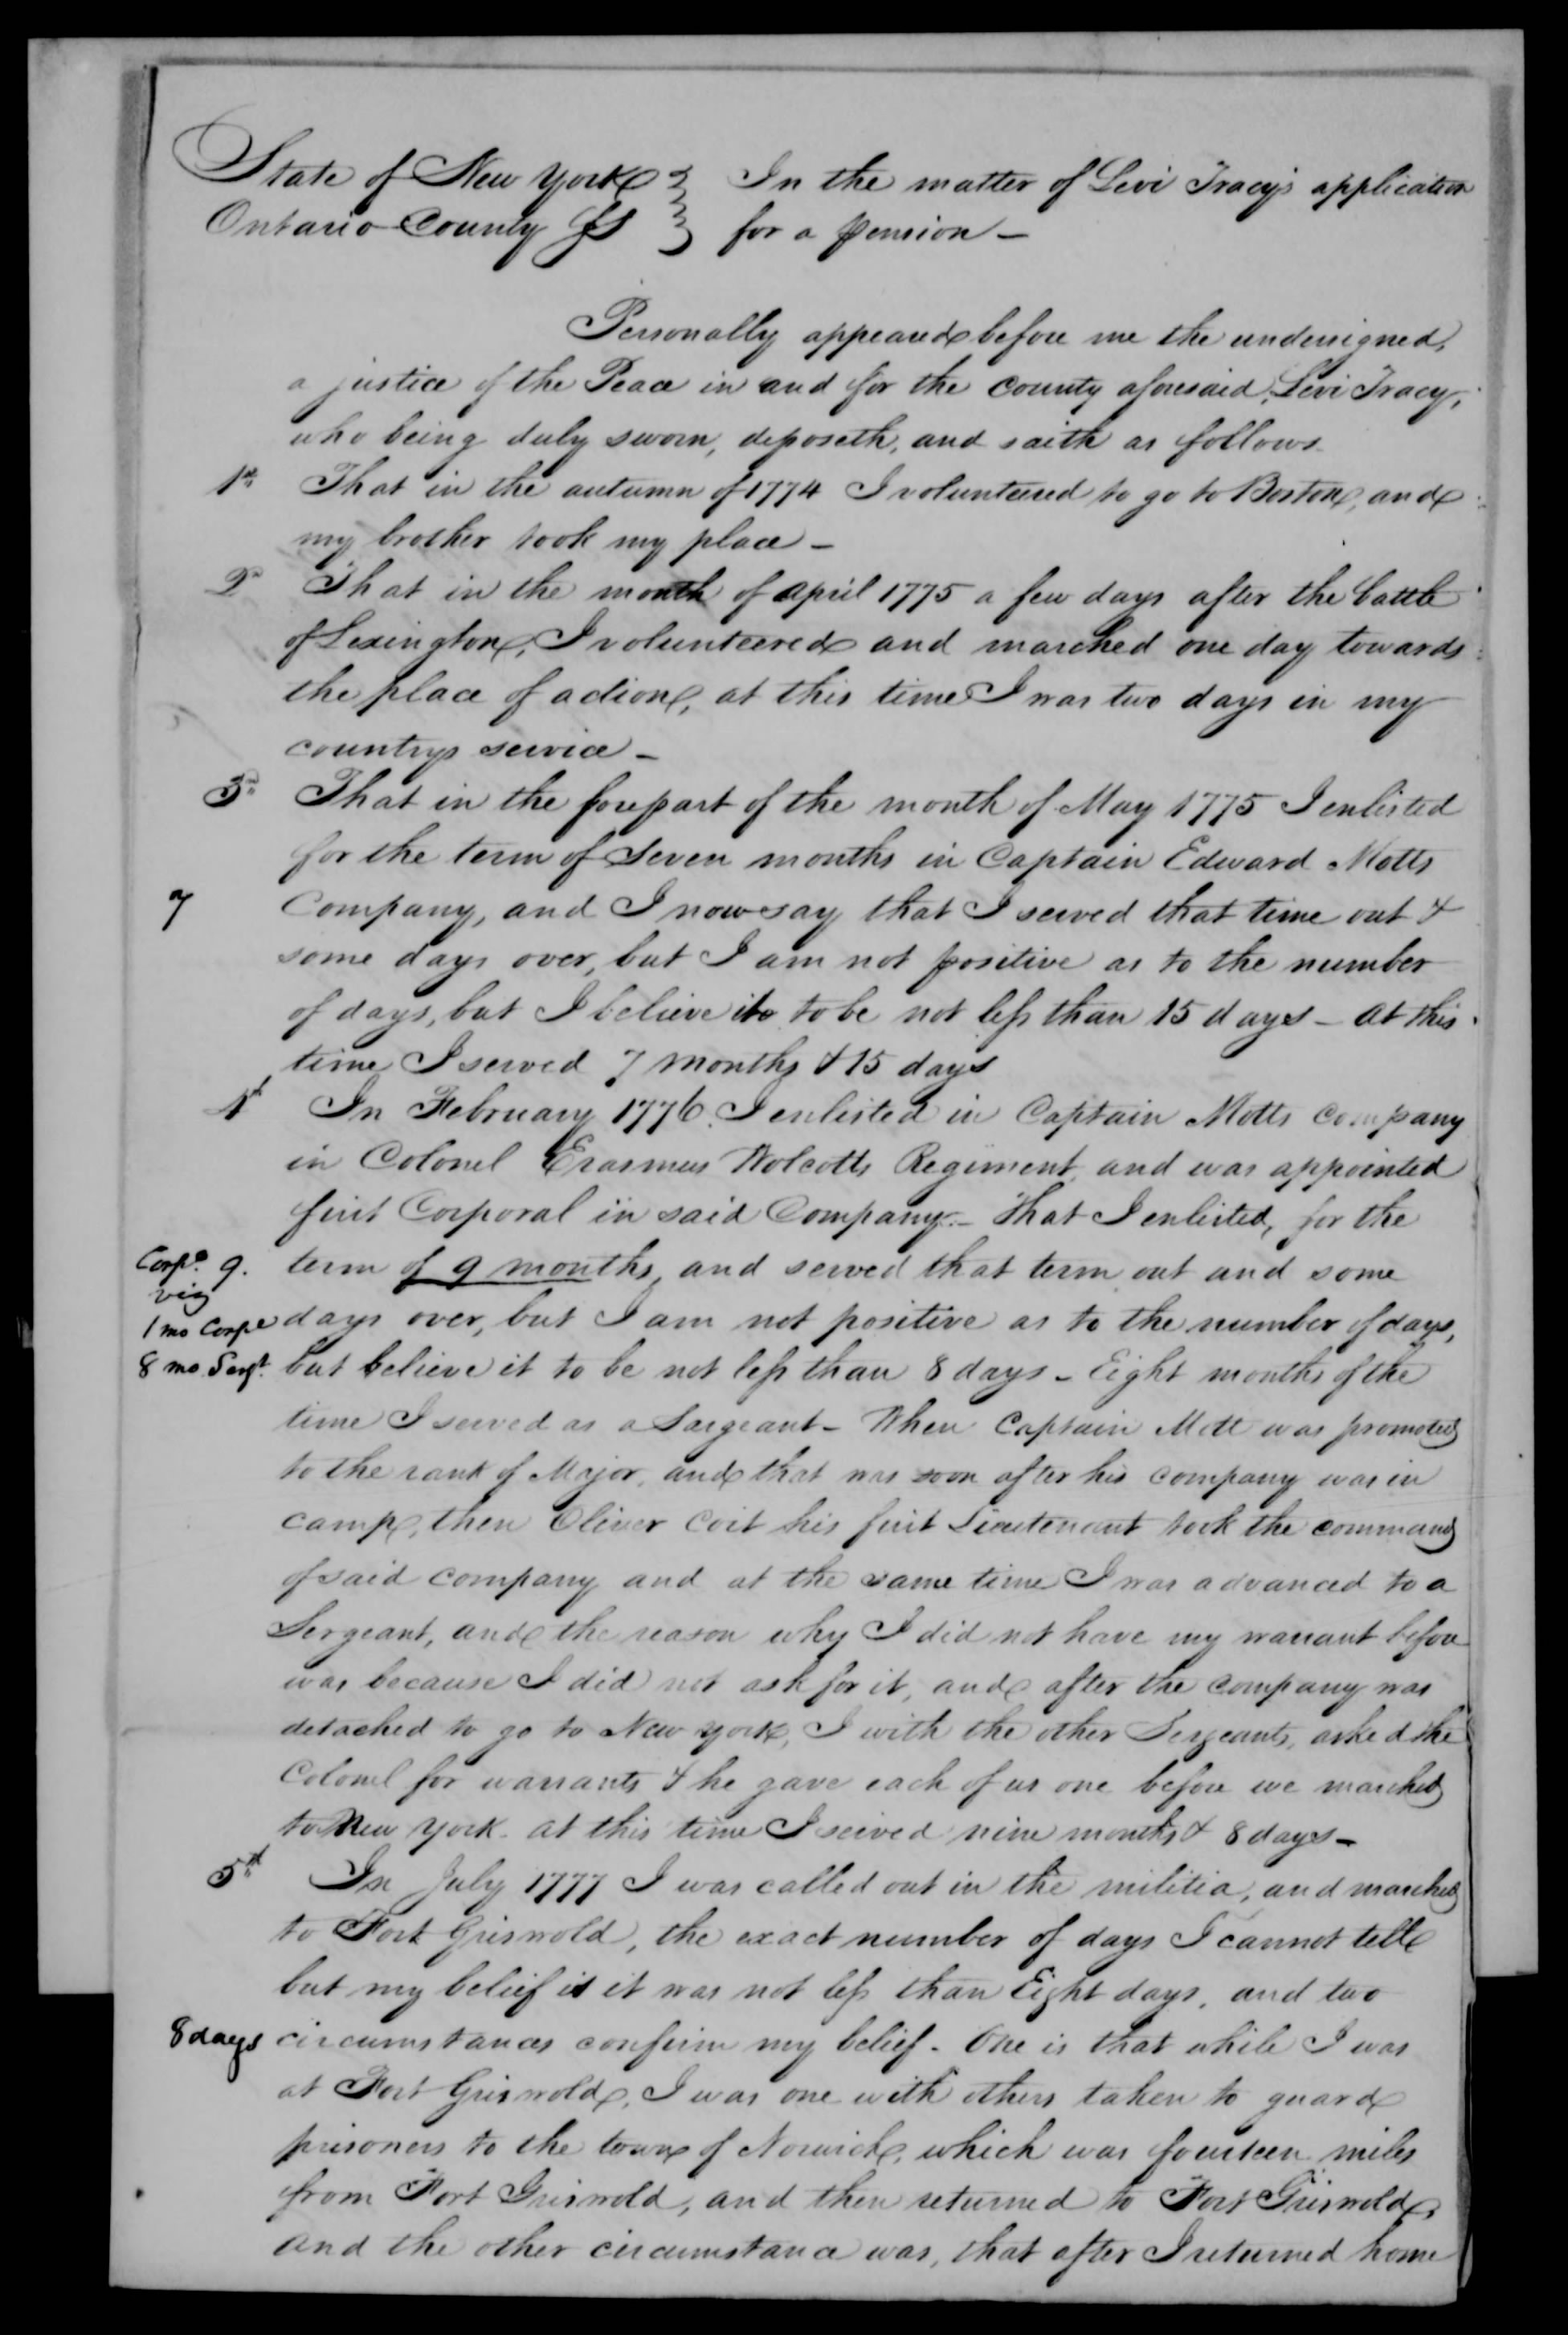 State of New York } In the matter of Levi Tracy's application
Ontario County SS } for a pension —
Personally appeared before me the undersigned,
a justice of the Peace in and for the county aforesaid, Levi Tracy,
who being duly sworn, deposeth, and saith as follows
1st That in the autumn of 1774 I volunteered to go to Boston, and
my brother took my place —
2d That in the month of April 1775 a few days after the battle
of Lexington, I volunteered and marched one day towards
the place of action, at this time I was two days in my
countrys service —
3d That in the forepart of the month of May 1775 I enlisted
for the term of Seven months in Captain Edward Motts
7 Company, and I now say that I served that time out &
some days over, but I am not positive as to the number
of days, but I believe it to be not less than 15 days — at this
time I served 7 months & 15 days
4th In February 1776 I enlisted in Captain Motts company
in Colonel Erasmus Wolcotts Regiment and was appointed
first Corporal in said Company — that I enlisted, for the
Corpl 9. term of 9 months, and served that term out and some
viz
1 mo Corpl days over, but I am not positive as to the number of days,
8 mo Sergt. but believe it to be not less than 8 days — Eight months of the
time I served as a Sargeant — When Captain Mott was promoted
to the rank of Major, and that was soon after his company was in
camp, then Oliver Coit his first Lieutenant took the command
of said company and at the same time I was advanced to a
Sergeant, and the reason why I did not have my warrant before
was because I did not ask for it, and after the company was
detached to go to New York, I with the other Sergeants, asked the
Colonel for warrants & he gave each of us one before we marched
to New York. at this time I served nine months & 8 days —
5th In July 1777 I was called out in the militia, and marched
to Fort Griswold, the exact number of days I cannot tell
but my belief is it was not less than Eight days, and two
8 days circumstances confirm my belief. One is that while I was
at Fort Griswold, I was one with others taken to guard
prisoners to the town of Norwich, which was fourteen miles
from Fort Griswold, and then returned to Fort Griswold,
and the other circumstance was, that after I returned home